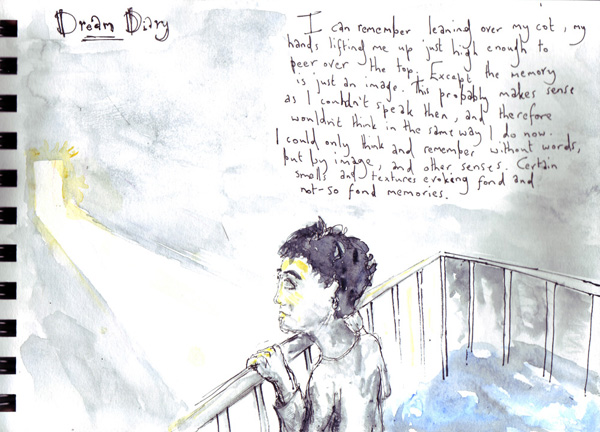 Dream Diary
I can remember leaning over my cot, my
hands lifting me up just high enough to
peer over the top. Except the memory
is just an image. This probably makes sense
as I couldn't speak then, and therefore
wouldn't think in the same way I do now.
I could only think and remember without words,
but by image, and other senses. Certain
smells and textures evoking fond and
not-so fond memories.